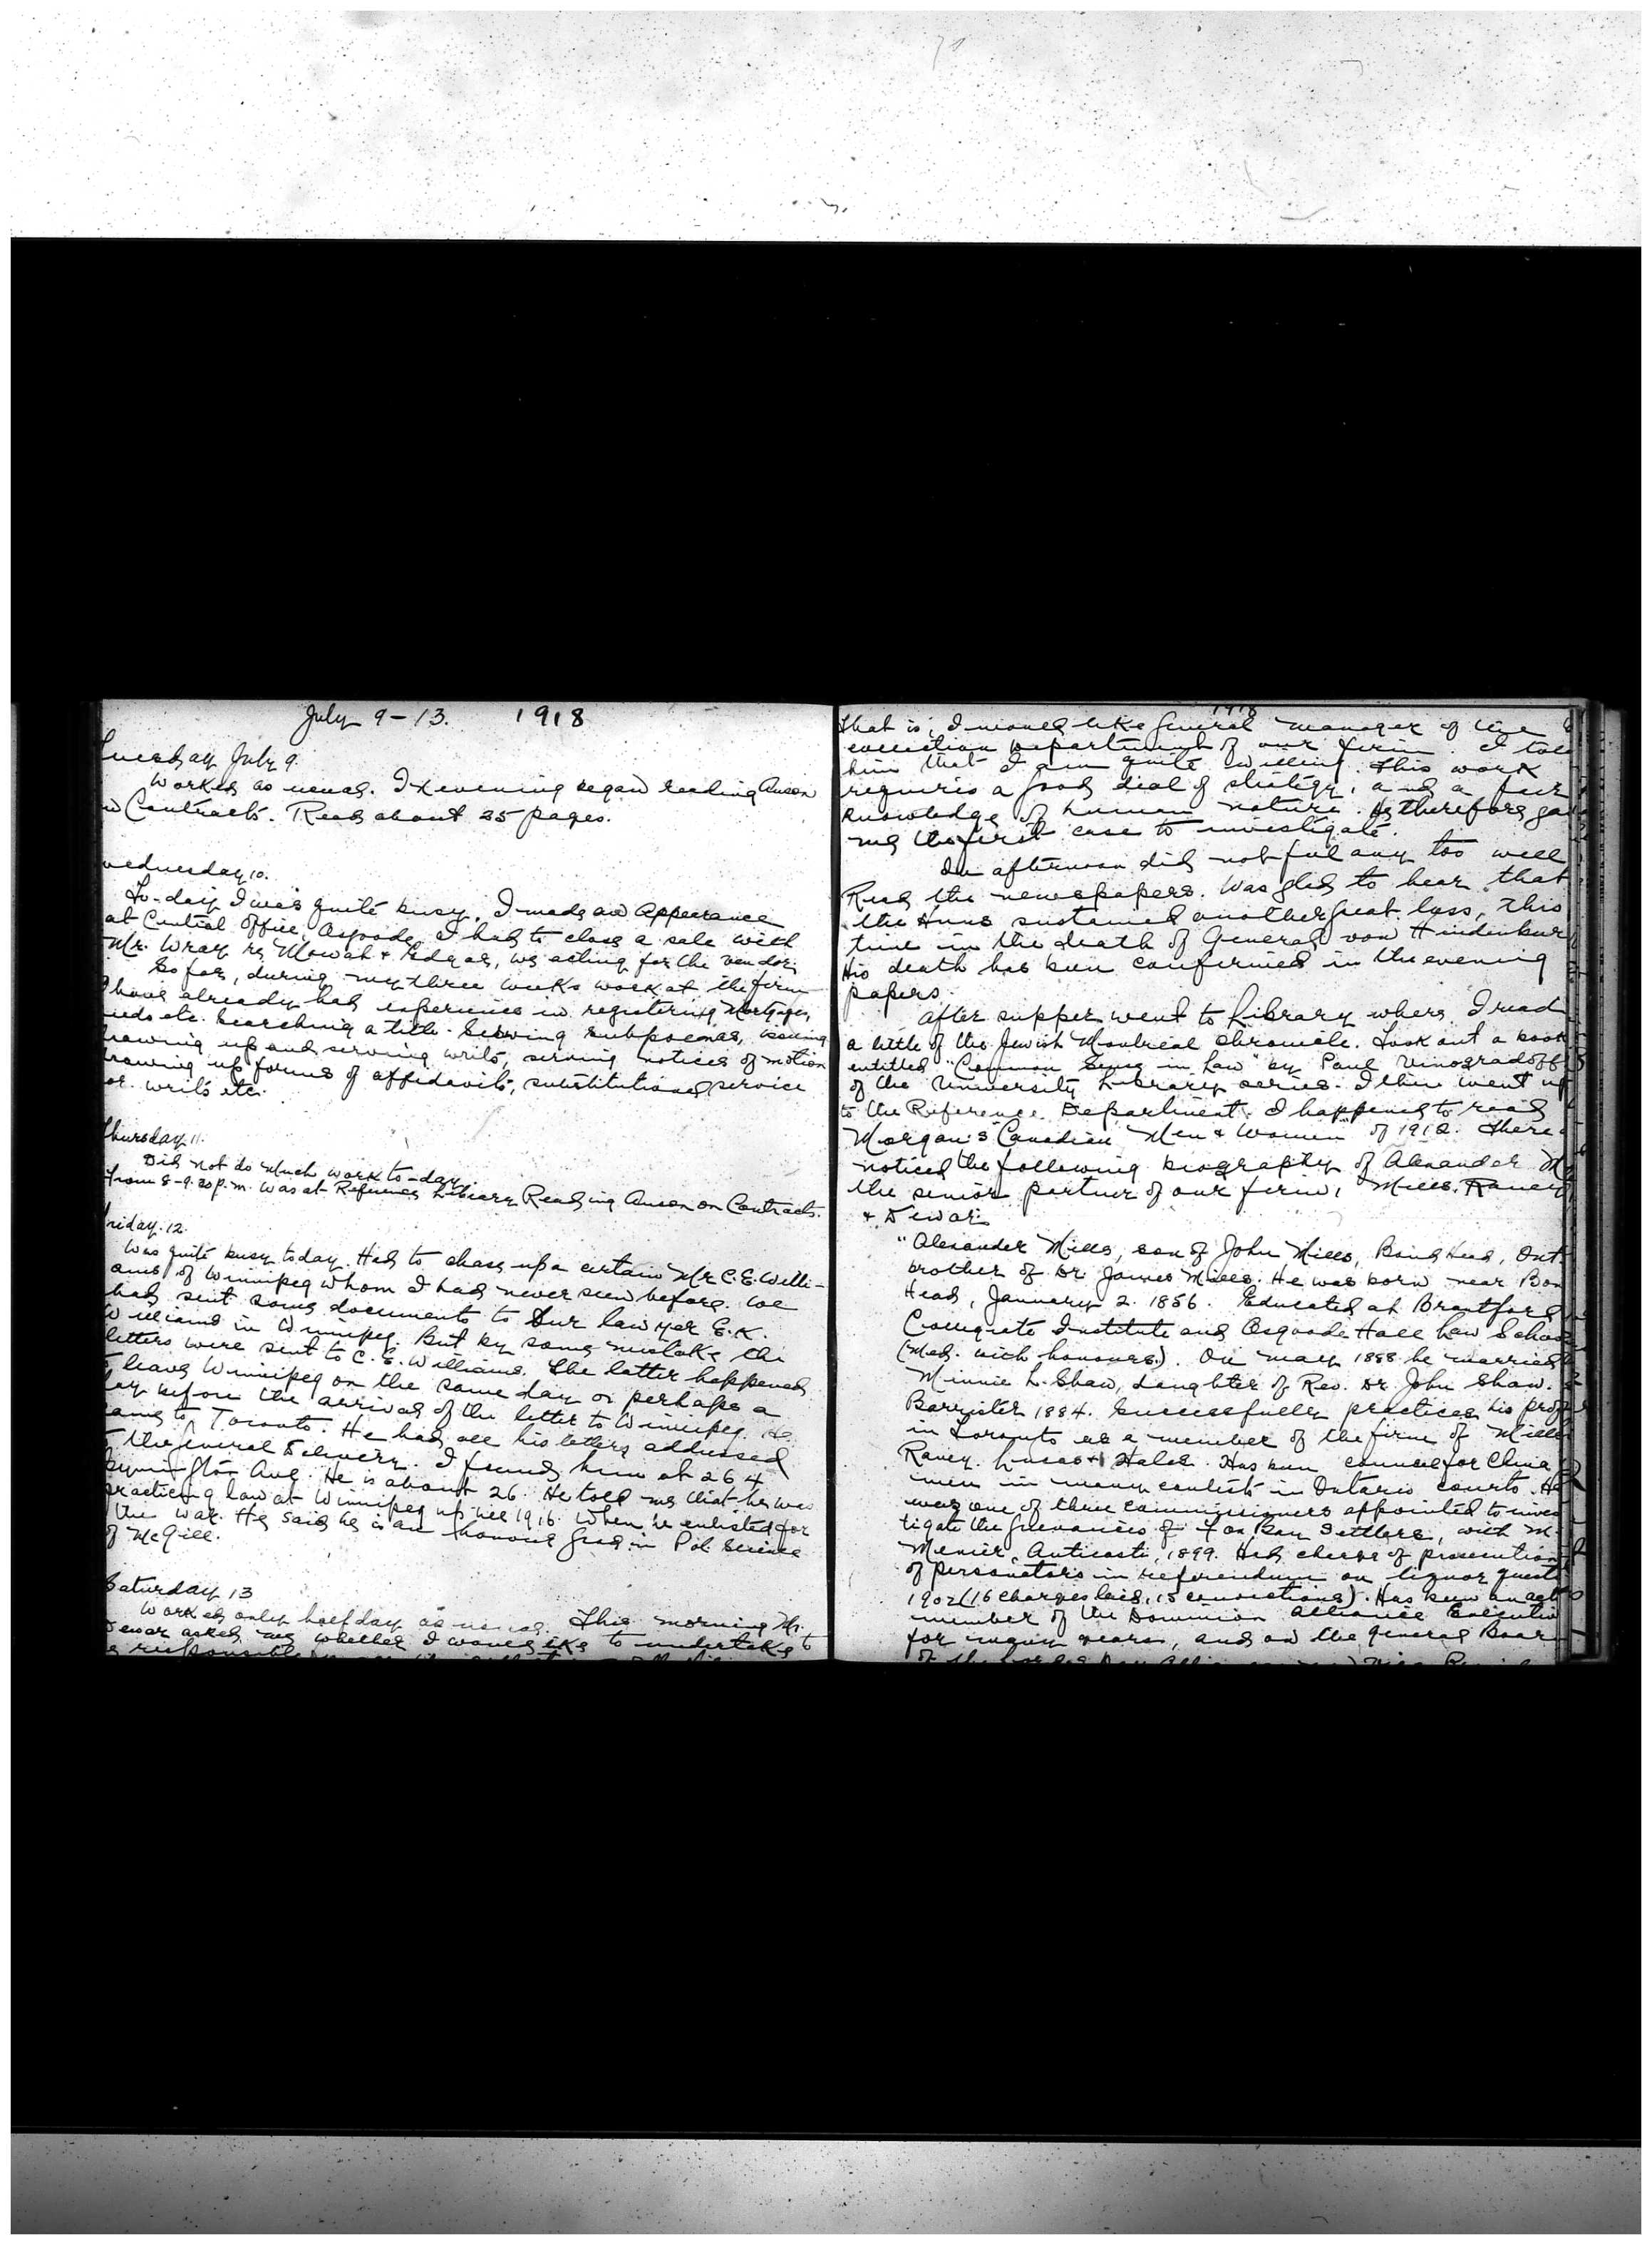 July 9-13. 1918
Tuesday July 9.
Worked as usual. In evening began reading Anson
on Contracts. Read about 25 pages.
Wednesday 10.
To-day I was quite busy. I made an Appearance
at Central Office, Osgoode. I had to close a sale with
Mr. Wray re Mowat & Edgar, we acting for the vendor.
So far, during my three weeks work at the firm
I have already had experience in registering Mortgages,
deeds etc. Searching a title. Serving subpoenas, issuing
drawing up and serving writs, serving notices of motion
drawing up forms of affidavits, substitutional service
or writs etc.
Thursday 11.
Did not do much work to-day.
From 8-9.30 p.m. was at Reference Library Reading Anson on Contracts.
Friday. 12.
Was quite busy today. Had to chase up a certain Mr C.E. Willi-
ams of Winnipeg whom I had never seen before. We
had sent some documents to our lawyer E.K.
Williams in Winnipeg. But by some mistake the
letters were sent to C.E. Williams. The latter happened
to leave Winnipeg on the same day or perhaps a
day before the arrival of the letter to Winnipeg. He
came to Toronto. He had all his letters addressed
to the General Delivery. I found him at 264
Symington Ave. He is about 26. He told me that he was
practicing law at Winnipeg up till 1916 when he enlisted for
the war. He said he is an honour grad in Pol. Science
of McGill.
Saturday 13
Worked only half day as usual. This morning Mr.
Dewar asked me whether I would like to undertake to
be responsible
1918
that is, I would like General manager of the
collection department of our firm. I told
him that I am quite willing. This work
requires a good deal of strategy, and a fair
knowledge of human nature. He therefore gave
me the first case to investigate.
In afternoon did not feel any too well
Read the newspapers. Was glad to hear that
the Huns sustained another great loss, this
time in the death of General von Hindenburg
His death has been confirmed in the evening
papers.
After supper went to Library where I read
a little of the Jewish Montreal Chronicle. Took out a book
entitled "Common Sense in Law" by Paul Vinogradoff
of the University Library series. I then went up
to the Reference Department. I happened to read
Morgan's "Canadian Men & Women" of 1912. There
noticed the following biography of Alexander
the senior partner of our firm, Mills, Raney
& Dewar.
"Alexander Mills, son of John Mills, Bond Head, Ont.
brother of Dr. James Mills. He was born near Bon
Head, January 2. 1856. Educated at Brantford
Collegiate Institute and Osgoode Hall Law School
(Med. with honours). On May 1888 he married
Minnie L. Shaw, daughter of Rev. Dr. John Shaw.
Barrister 1884. Successfully practices his prof
in Toronto as a member of the firm of Mills
Raney. Lucas & Hales. Has been counsel for China
men in many contests in Ontario courts. He
was one of three commissioners appointed to inves
tigate the grievances of Fox Bay Settlers, with M.
Menier, Anticosti, 1899. Had charge of prosecution
of personators in referendum on liquor quest
1902 (16 charges laid, 15 convictions). Has been an act
member of the Dominion Alliance Executive
for many years, and on the General Boar
of the Lord's Day